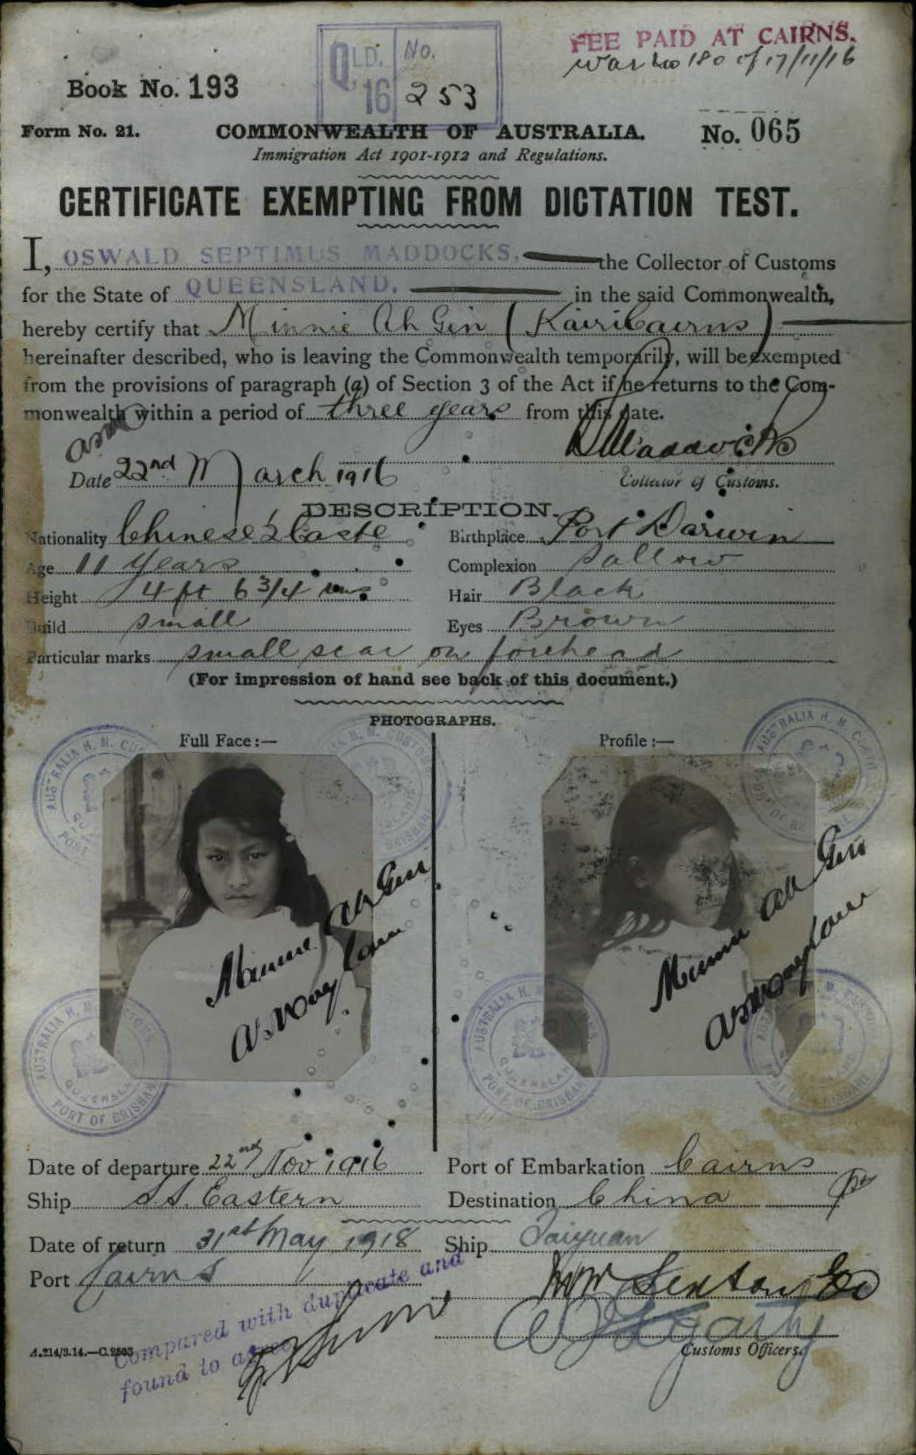 QLD. No.
16 253
FEE PAID AT CAIRNS.
War No 180 of 17/11/16
Book No. 193
Form No. 21.
COMMONWEALTH OF AUSTRALIA.
No. 065
Immigration Act 1901-1912 and Regulations.
CERTIFICATE EXEMPTING FROM DICTATION TEST.
I, OSWALD SEPTIMUS MADDOCKS, the Collector of Customs
for the State of QUEENSLAND, in the said Commonwealth,
hereby certify that Minnie Ah Gin (Kairi Cairns)
hereinafter described, who is leaving the Commonwealth temporarily, will be exempted
from the provisions of paragraph (a) of Section 3 of the Act if he returns to the Com-
monwealth within a period of three years from this date.
Date 22nd March 1916
Collector of Customs.
DESCRIPTION.
Nationality Chinese ½ Caste Birthplace Port Darwin
Age 11 Years Complexion Sallow
Height 4 ft 6 3/4 ins Hair Black
Build small Eyes Brown
Particular marks small scar on forehead
(For impression of hand see back of this document.)
PHOTOGRAPHS.
Full Face:— Profile:—
AUSTRALIA H. M. CUSTOMS
QUEENSLAND
PORT OF BRISBANE
Minnie Ah Gin
Minnie Ah Gin
Date of departure 22nd Nov 1916 Port of Embarkation Cairns
Ship S.S. Eastern Destination China
Date of return 31st May 1918 Ship Taiyuan
Port Cairns
Compared with duplicate and
found to agree
A.214/3.14.—C.2503
Customs Officers.